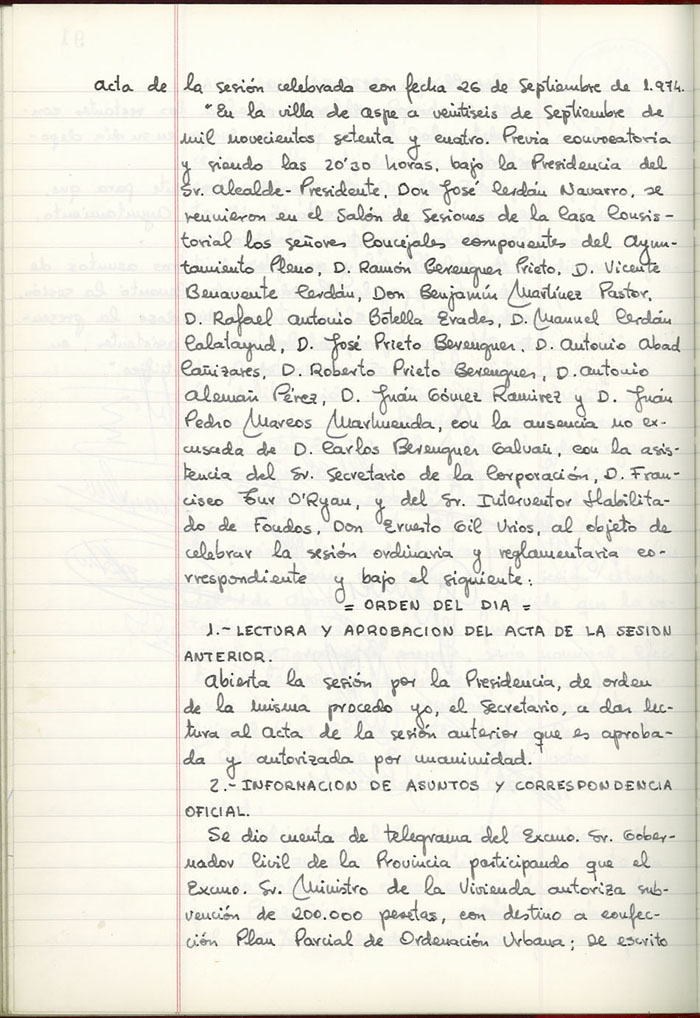 Acta de la sesión celebrada con fecha 26 de Septiembre de 1.974.
"En la villa de Aspe a veintiseis de Septiembre de
mil novecientos setenta y cuatro. Previa convocatoria
y siendo las 20'30 horas, bajo la Presidencia del
Sr. Alcalde-Presidente, Don José Cerdán Navarro, se
reunieron en el Salón de Sesiones de la Casa Consis-
torial los señores Concejales componentes del Ayun-
tamiento Pleno, D. Ramón Berenguer Prieto, D. Vicente
Benavente Cerdán, Don Benjamín Martínez Pastor,
D. Rafael Antonio Botella Erades, D. Manuel Cerdán
Calatayud, D. José Prieto Berenguer, D. Antonio Abad
Cañizares, D. Roberto Prieto Berenguer, D. Antonio
Alemañ Pérez, D. Juán Gómez Ramírez y D. Juán
Pedro Marcos Marhuenda, con la ausencia no ex-
cusada de D. Carlos Berenguer Galvañ, con la asis-
tencia del Sr. Secretario de la Corporación, D. Fran-
cisco Fur O'Ryan, y del Sr. Interventor Habilita-
do de Fondos, Don Ernesto Gil Urios, al objeto de
celebrar la sesión ordinaria y reglamentaria co-
rrespondiente y bajo el siguiente:
= ORDEN DEL DIA =
1.- LECTURA Y APROBACION DEL ACTA DE LA SESION
ANTERIOR.
Abierta la sesión por la Presidencia, de orden
de la misma procedo yo, el Secretario, a dar lec-
tura al Acta de la sesión anterior que es aproba-
da y autorizada por unanimidad.
2.- INFORMACION DE ASUNTOS Y CORRESPONDENCIA
OFICIAL.
Se dio cuenta de telegrama del Excmo. Sr. Gober-
nador Civil de la Provincia participando que el
Excmo. Sr. Ministro de la Vivienda autoriza sub-
vención de 200.000 pesetas, con destino a confec-
ción Plan Parcial de Ordenación Urbana; De escrito